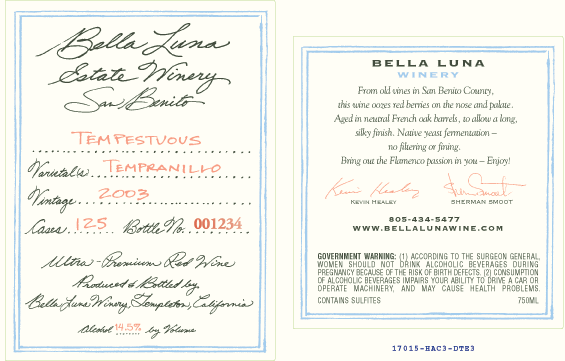 Bella Luna
Estate Winery
San Benito
TEMPESTUOUS
Varietal/s TEMPRANILLO
Vintage 2003
Cases 125 Bottle No. 001234
Ultra-Premium Red Wine
Produced & Bottled by
Bella Luna Winery, Templeton, California
Alcohol 14.5% by Volume
BELLA LUNA
WINERY
From old vines in San Benito County,
this wine oozes red berries on the nose and palate.
Aged in neutral French oak barrels, to allow a long,
silky finish. Native yeast fermentation –
no filtering or fining.
Bring out the Flamenco passion in you – Enjoy!
Kevin Healey Sherman Smoot
KEVIN HEALEY SHERMAN SMOOT
805-434-5477
WWW.BELLALUNAWINE.COM
GOVERNMENT WARNING: (1) ACCORDING TO THE SURGEON GENERAL,
WOMEN SHOULD NOT DRINK ALCOHOLIC BEVERAGES DURING
PREGNANCY BECAUSE OF THE RISK OF BIRTH DEFECTS. (2) CONSUMPTION
OF ALCOHOLIC BEVERAGES IMPAIRS YOUR ABILITY TO DRIVE A CAR OR
OPERATE MACHINERY, AND MAY CAUSE HEALTH PROBLEMS.
CONTAINS SULFITES 750ML
17015-HAC3-DTE3